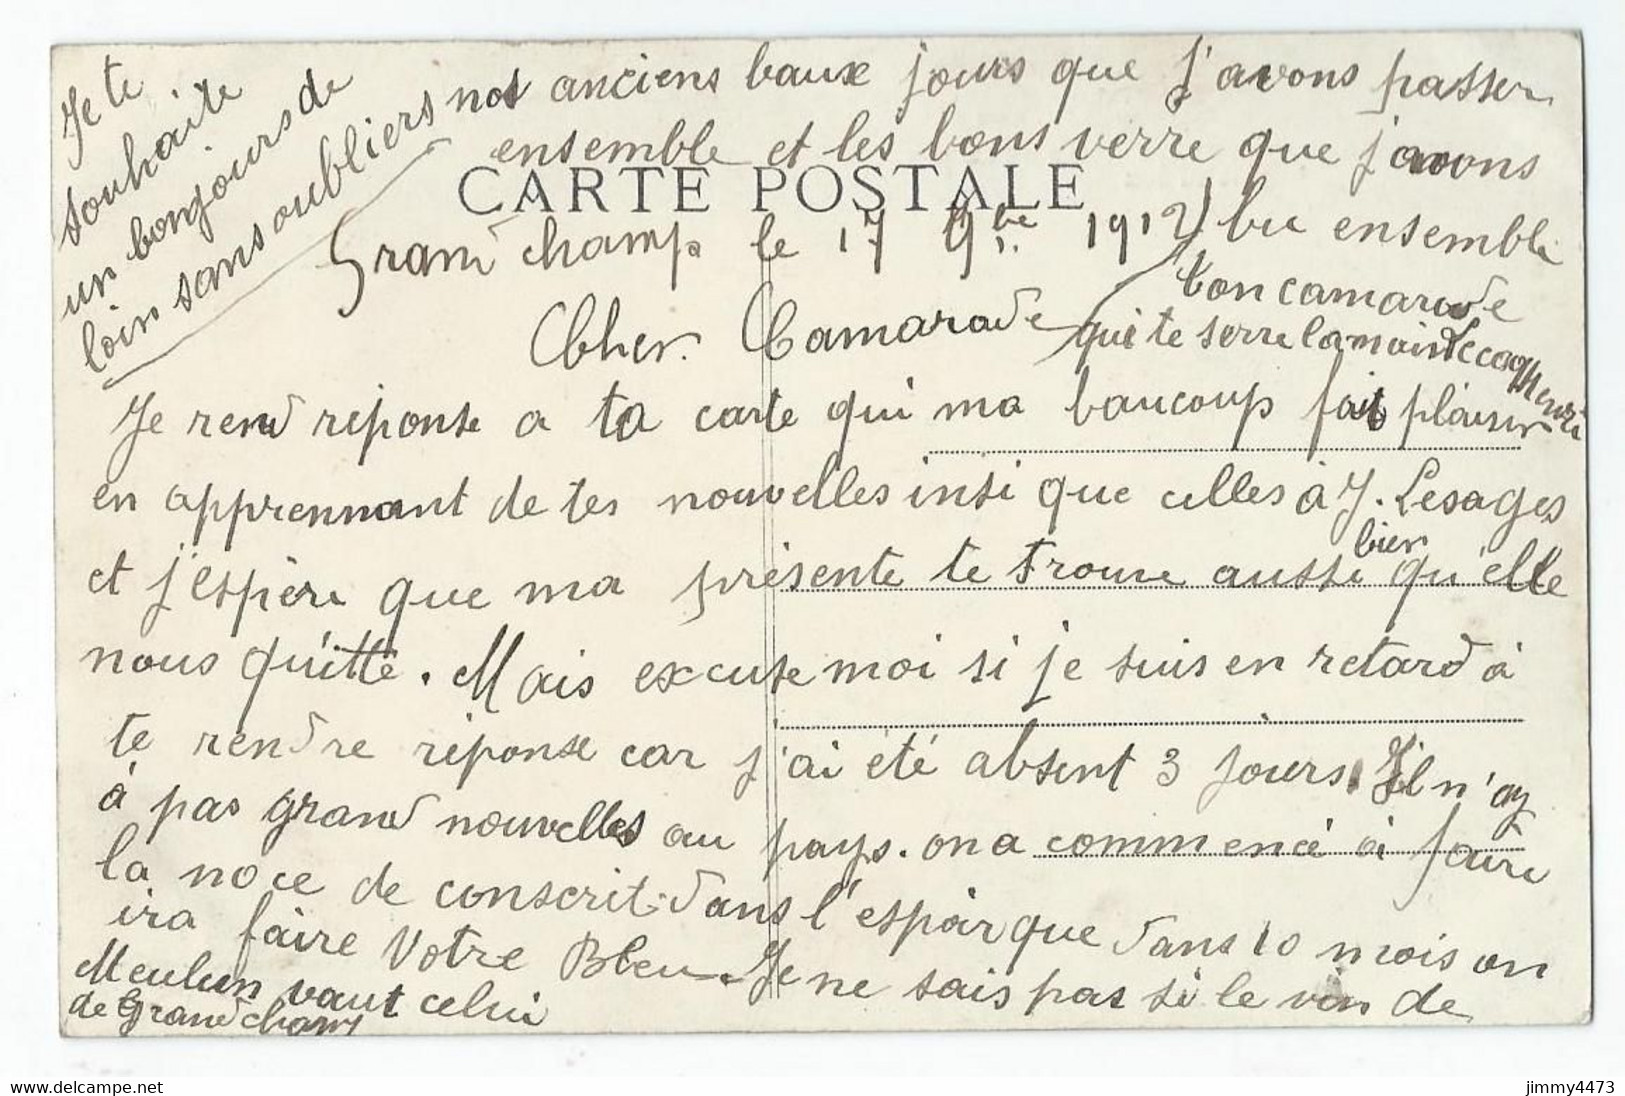 CARTE POSTALE
Grand champ le 17 9bre 1912
Cher Camarade
Je rend réponse a ta carte qui ma baucoup fait plaisir
en apprennant de tes nouvelles insi que celles à J. Lesages
et j'espère que ma présente te trouve aussi bien qu'elle
nous quitte. Mais excuse moi si je suis en retard à
te rendre réponse car j'ai été absent 3 jours. Il n'ay
à pas grand nouvelles au pays. on a commencé à faire
la noce de conscrit dans l'espoir que dans 10 mois on
ira faire Votre Bleu. Je ne sais pas si le vin de
Meulun vaut celui
de Grandchamp
Je te
souhaite
un bonjours de
loin sans oubliers nos anciens baux jours que j'avons passer
ensemble et les bons verre que j'avons
bu ensemble
ton camarade
qui te serre la main Lecoq Henri
www.delcampe.net
jimmy4473